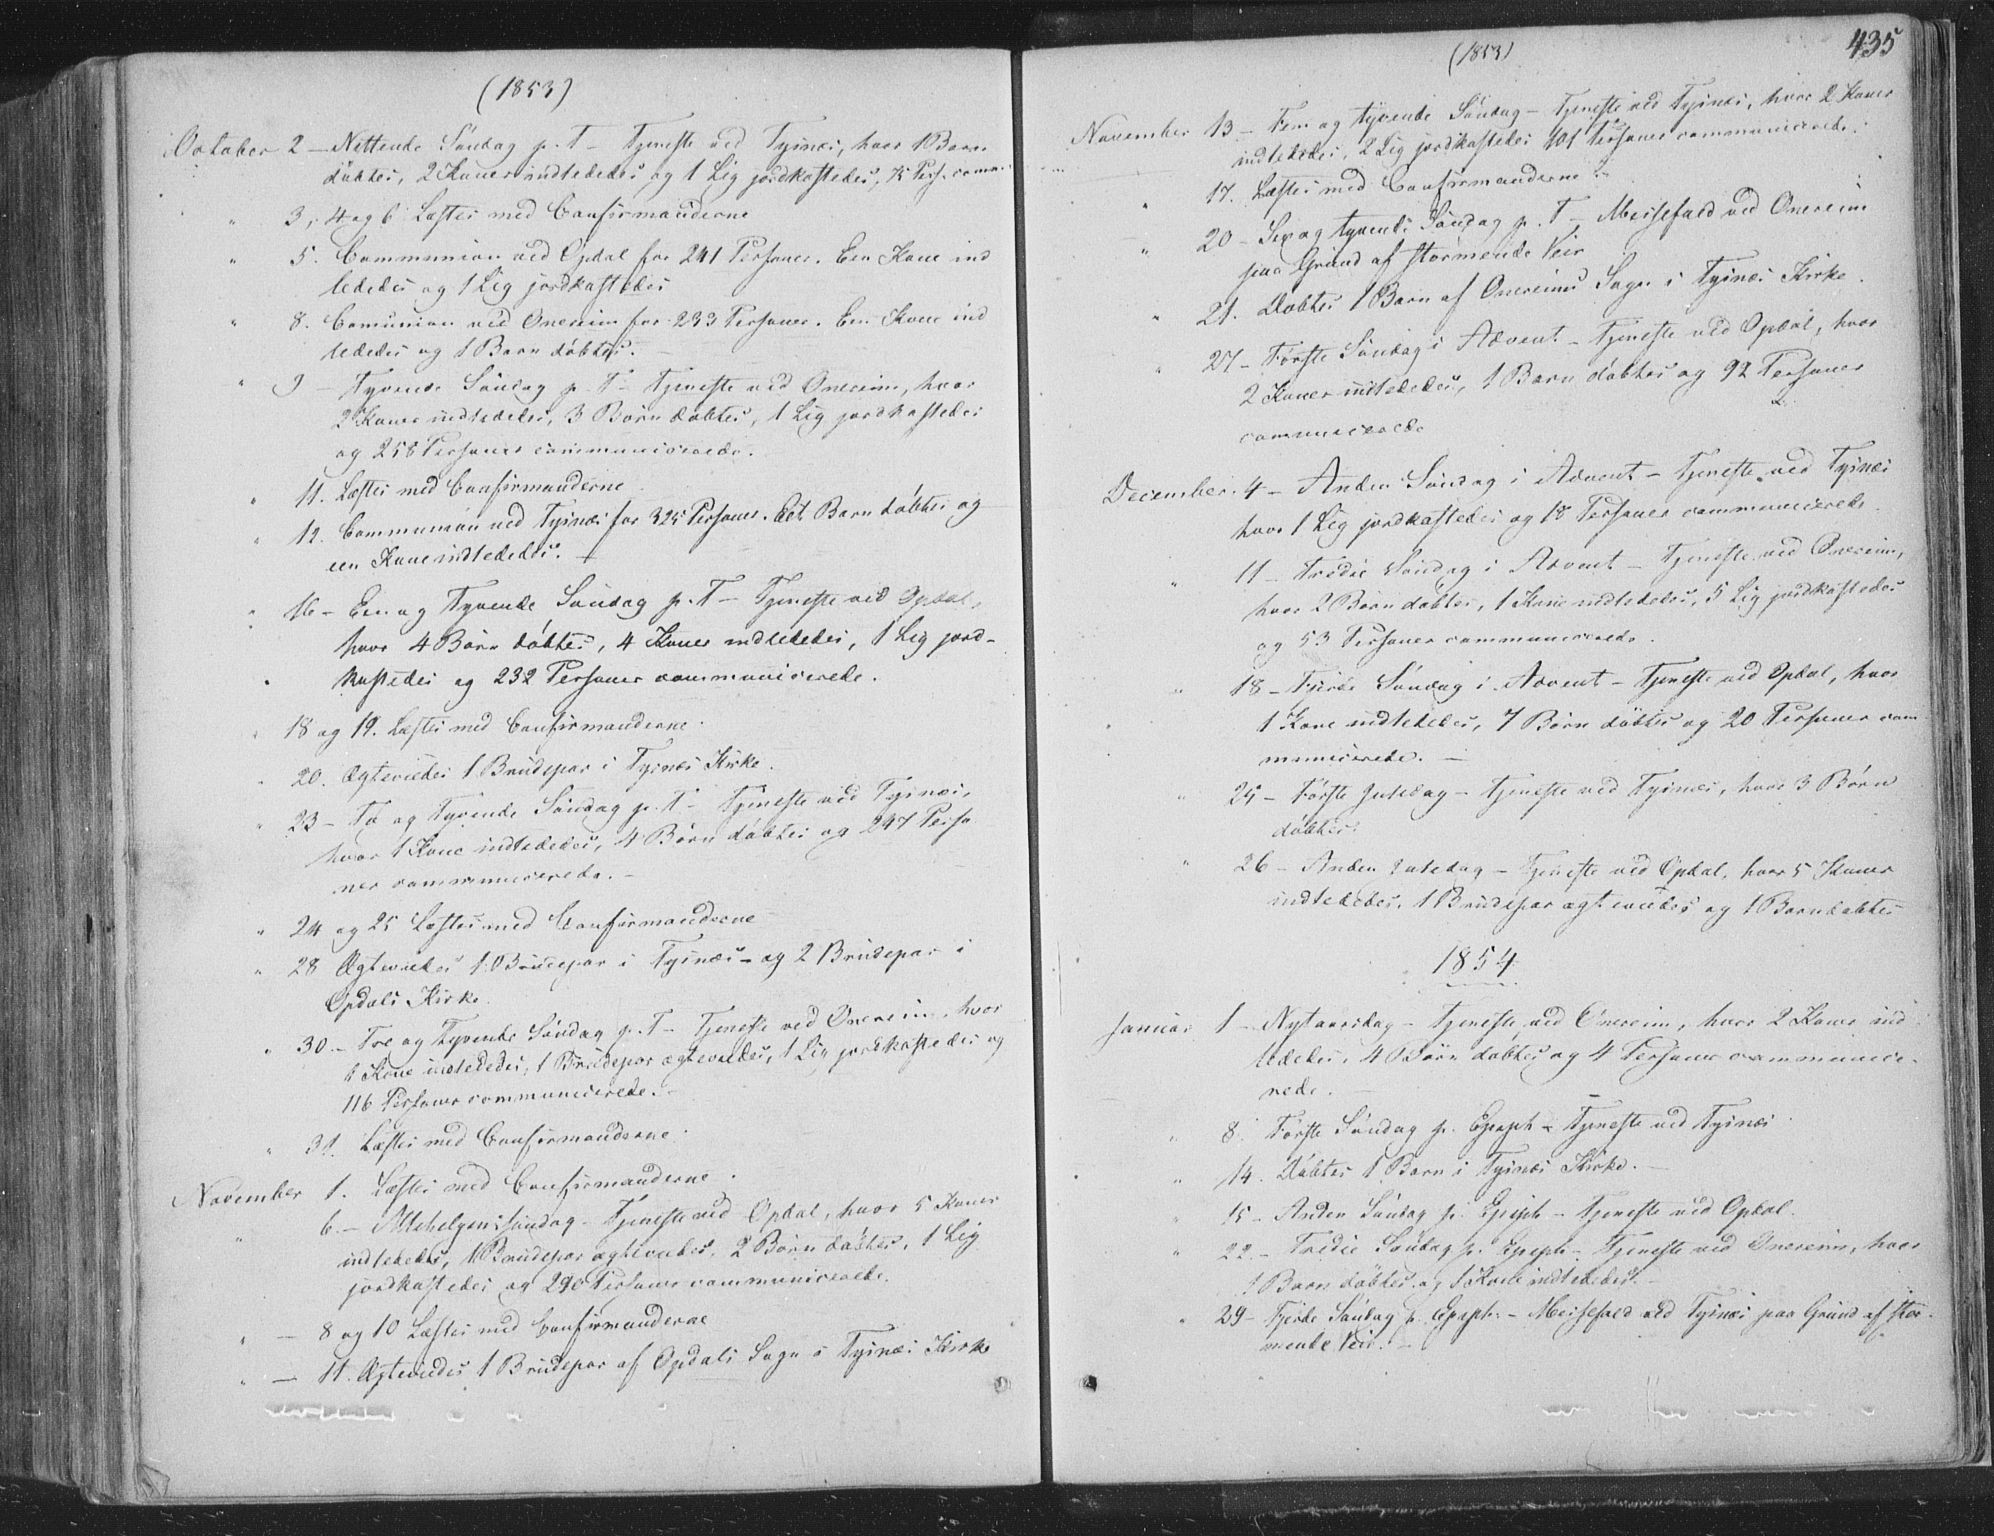 (1853)
October 2 – Nittende Søndag p. T – Tjeneste ved Tysnæs, hvor 1 Barn
døbtes, 2 Koner indlededes og 1 Lig jordkastedes, 75 Pers. comm.
" 3, 4 og 6 Læstes med Confirmanderne
" 5. Communion ved Opdal for 241 Personer. Een Kone ind
lededes og 1 Lig jordkastedes
" 8. Comunion ved Onereim for 233 Personer. Een Kone ind
lededes og 1 Barn døbtes. –
" 9 – Tyvende Søndag p. T – Tjeneste ved Onereim, hvor
2 Koner indlededes, 3 Børn døbtes, 1 Lig jordkastedes
og 258 Personer communicerede.
" 11. Læstes med Confirmanderne
" 12. Communion ved Tysnæs for 325 Personer. Eet Barn døbtes og
een Kone indlededes. –
" 16 – Een og Tyvende Søndag p. T – Tjeneste ved Opdal,
hvor 4 Børn døbtes, 4 Koner indlededes, 1 Lig jord-
kastedes og 232 Personer communicerede.
" 18 og 19. Læstes med Confirmanderne.
" 20. Ægteviedes 1 Brudepar i Tysnæs Kirke.
" 23 – To og Tyvende Søndag p. T – Tjeneste ved Tysnæs,
hvor 1 Kone indlededes, 4 Børn døbtes og 247 Perso
ner communicerede. –
" 24 og 25 Læstes med Confirmanderne
" 28 Ægteviedes 1 Brudepar i Tysnæs – og 2 Brudepar i
Opdals Kirke.
" 30 – Tre og Tyvende Søndag p. T – Tjeneste ved Onereim, hvor
1 Kone indlededes, 1 Brudepar ægteviedes, 1 Lig jordkastedes og
116 Personer communicerede. –
" 31. Læstes med Confirmanderne.
November 1. Læstes med Confirmanderne.
" 6 – Allehelgenssøndag – Tjeneste ved Opdal, hvor 5 Koner
indlededes, 1 Brudepar ægteviedes, 2 Børn døbtes, 1 Lig
jordkastedes og 290 Personer communicerede.
" – 8 og 10 Læstes med Confirmanderne
" – 11. Ægteviedes 1 Brudepar af Opdals Sogn i Tysnæs Kirke
435
(1853)
November 13 – Fem og tyvende Søndag – Tjeneste ved Tysnæs, hvor 2 Koner
indlededes, 2 Lig jordkastedes 101 Personer communicerede.
" 17. Læstes med Confirmanderne –
" 20 – Sex og tyvende Søndag p. T – Messefald ved Onereim
paa Grund af stormende Veir
" 21. Døbtes 1 Barn af Onereims Sogn i Tysnæs Kirke.
" 27 – Første Søndag i Advent – Tjeneste ved Opdal, hvor
2 Koner indlededes, 1 Barn døbtes og 92 Personer
communicerede
December 4 – Anden Søndag i Advent – Tjeneste ved Tysnæs
hvor 1 Lig jordkastedes og 18 Personer communicerede.
" 11 – Tredie Søndag i Advent – Tjeneste ved Onereim,
hvor 2 Børn døbtes, 1 Kone indlededes, 5 Lig jordkastedes
og 53 Personer communicerede.
" 18 – Fjerde Søndag i Advent – Tjeneste ved Opdal, hvor
1 Kone indlededes, 7 Børn døbtes og 20 Personer com
municerede. –
" 25 – Første Juledag – Tjeneste ved Tysnæs, hvor 3 Børn
døbtes.
" 26 – Anden Juledag – Tjeneste ved Opdal, hvor 5 Koner
indlededes, 1 Brudepar ægteviedes og 1 Barn døbtes
1854.
Januar 1 – Nytaarsdag – Tjeneste ved Onereim, hvor 2 Koner ind
lededes, 4 Børn døbtes og 4 Personer communice-
rede.
" 8. Første Søndag p. Epiph – Tjeneste ved Tysnæs
" 14. Døbtes 1 Barn i Tysnæs Kirke. –
" 15 – Anden Søndag p. Epiph – Tjeneste ved Opdal.
" 22 – Tredie Søndag p. Epiph – Tjeneste ved Onereim, hvor
1 Barn døbtes og 1 Kone indlededes. –
" 29 – Fjerde Søndag p. Epiph. – Messefald ved Tysnæs paa Grund af stor-
mende Veir. –